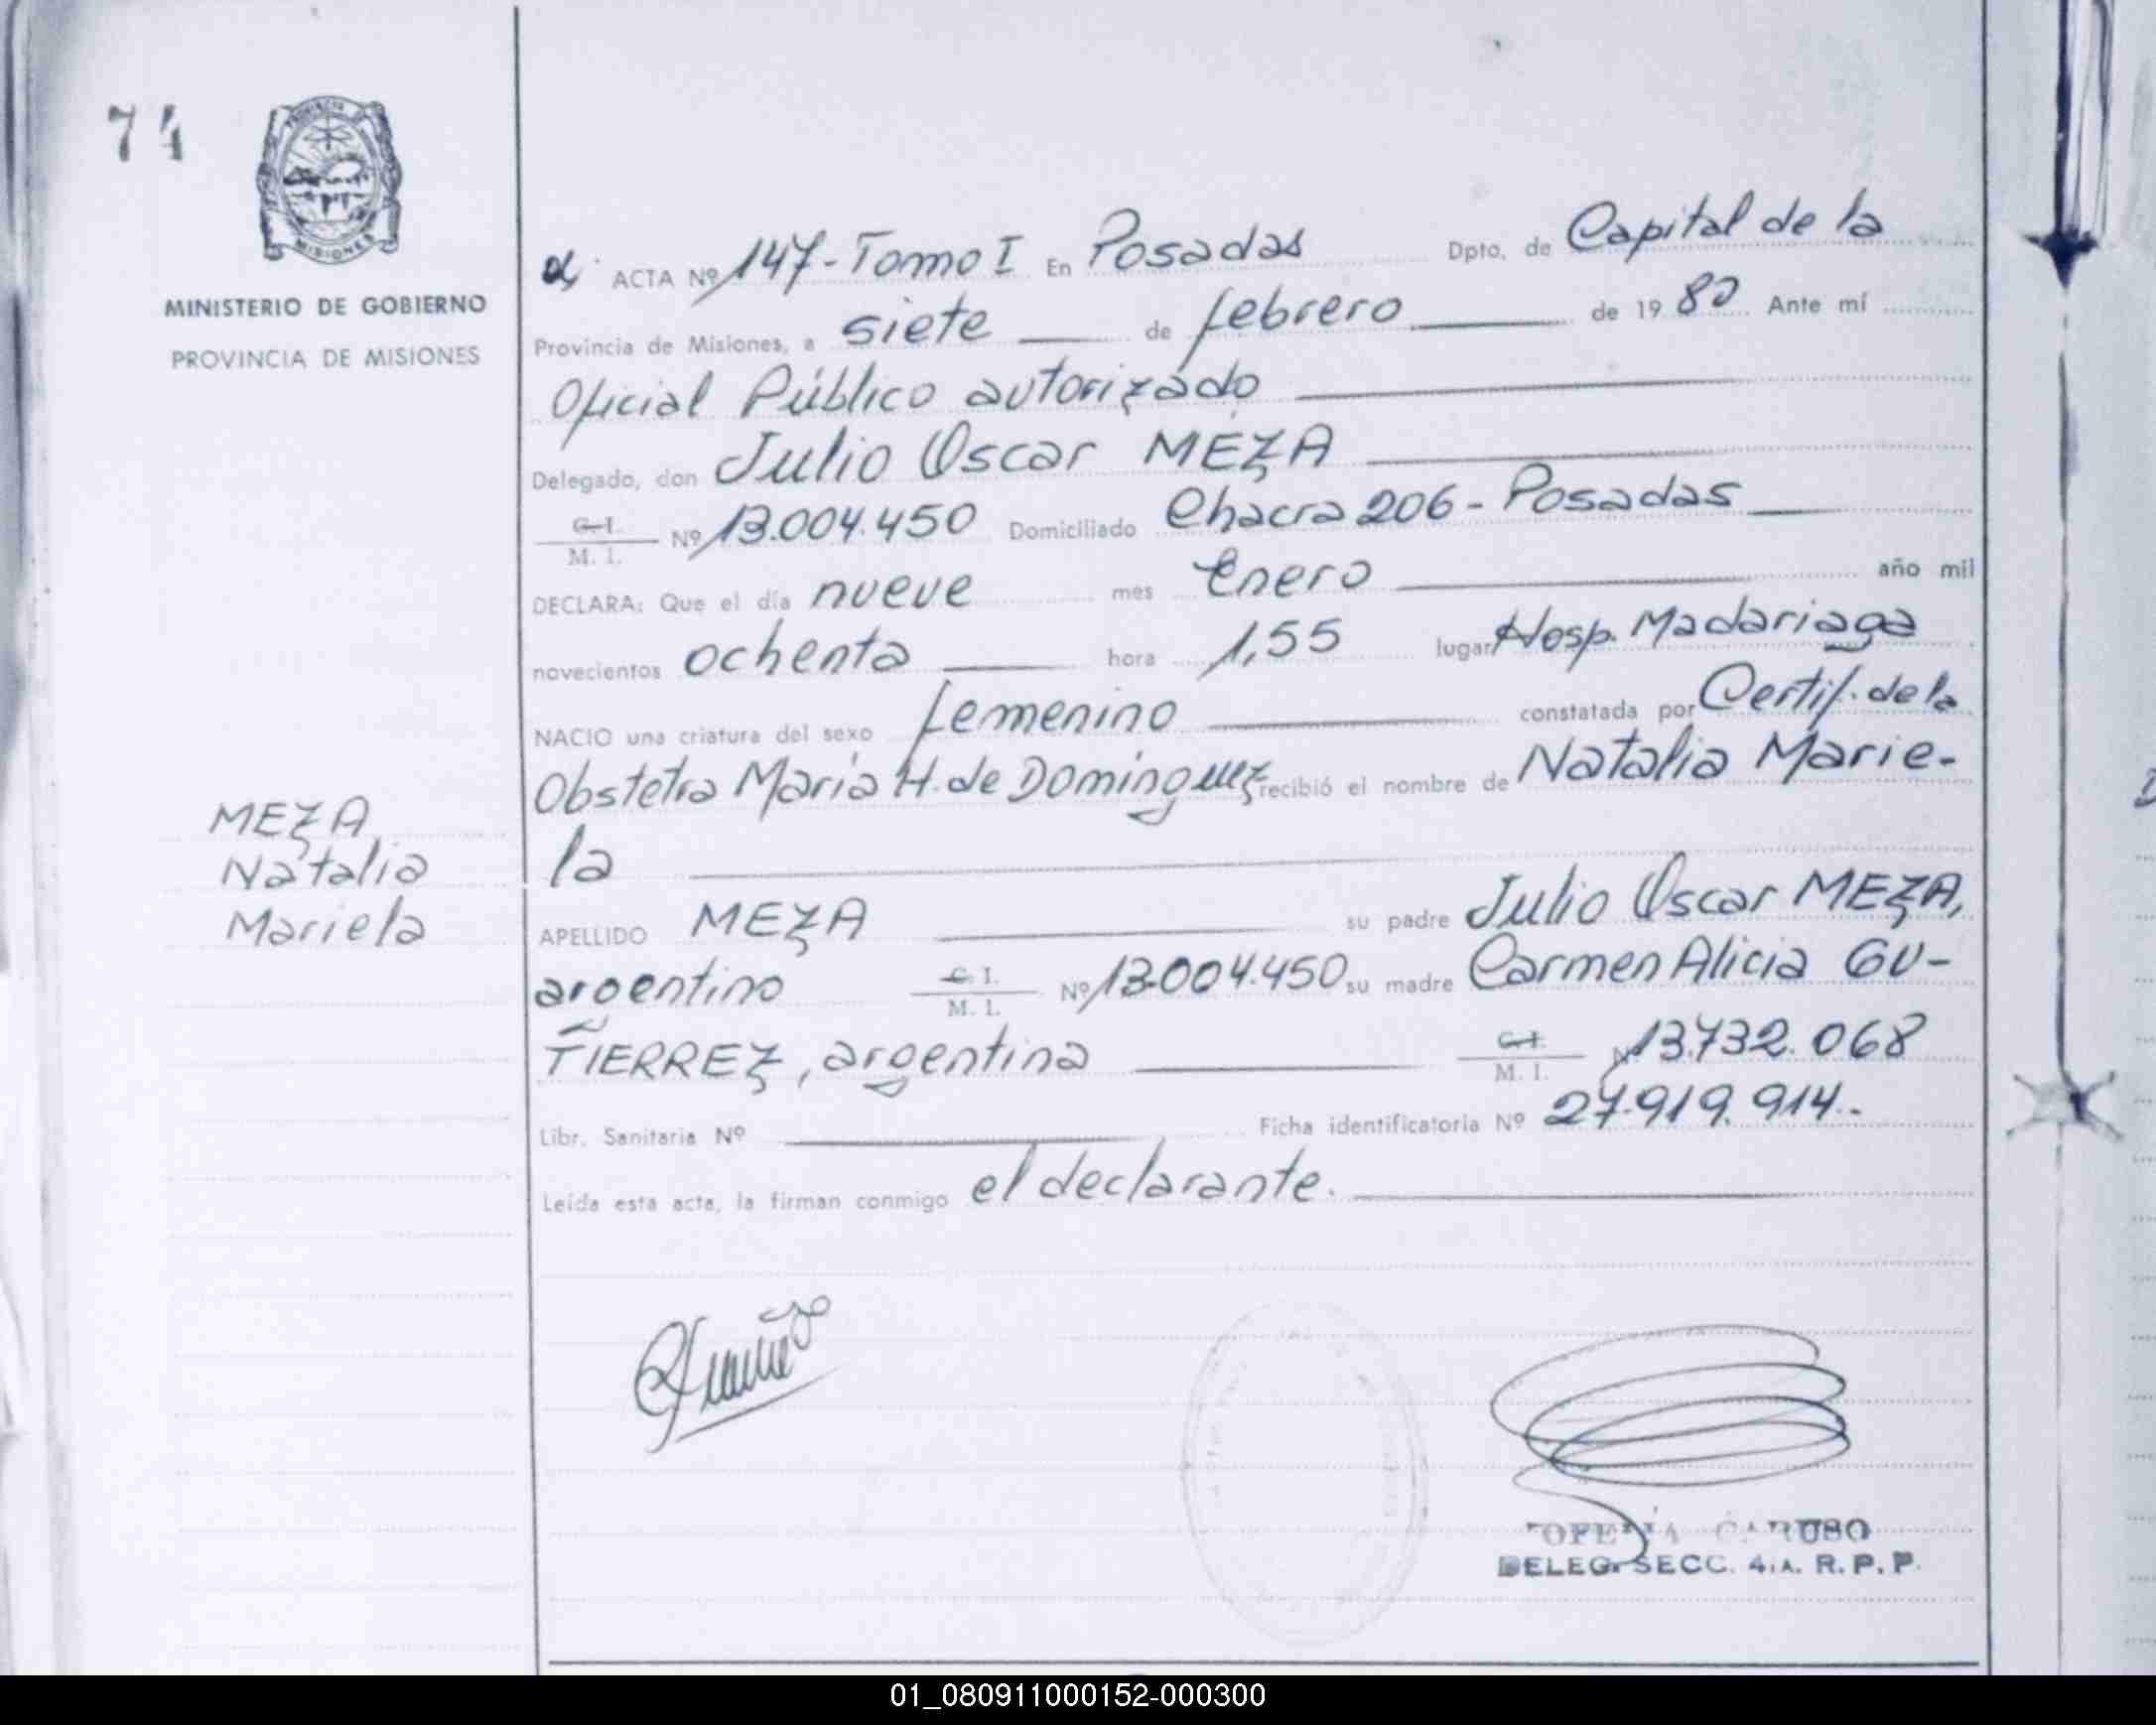 74
PROVINCIA DE
MISIONES
MINISTERIO DE GOBIERNO
PROVINCIA DE MISIONES
MEZA
Natalia
Mariela
ACTA Nº 147-Tomo I En Posadas Dpto. de Capital de la
Provincia de Misiones, a siete de febrero de 1980 Ante mí
Oficial Público autorizado
Delegado, don Julio Oscar MEZA
C. I. M. I. Nº 13.004.450 Domiciliado Chacra 206 - Posadas
DECLARA: Que el día nueve mes Enero año mil
novecientos ochenta hora 1,55 lugar Hosp. Madariaga
NACIO una criatura del sexo femenino constatada por Certif. de la
Obstetra María H. de Domínguez recibió el nombre de Natalia Marie-
la
APELLIDO MEZA su padre Julio Oscar MEZA,
argentino C. I. M. I. Nº 13.004.450 su madre Carmen Alicia GU-
TIERREZ, argentina C. I. M. I. Nº 13.732.068
Libr. Sanitaria Nº Ficha identificatoria Nº 27.919.914.-
Leída esta acta, la firman conmigo el declarante.
OFELIA CARUSO
DELEG. SECC. 4.A. R. P. P.
01_080911000152-000300